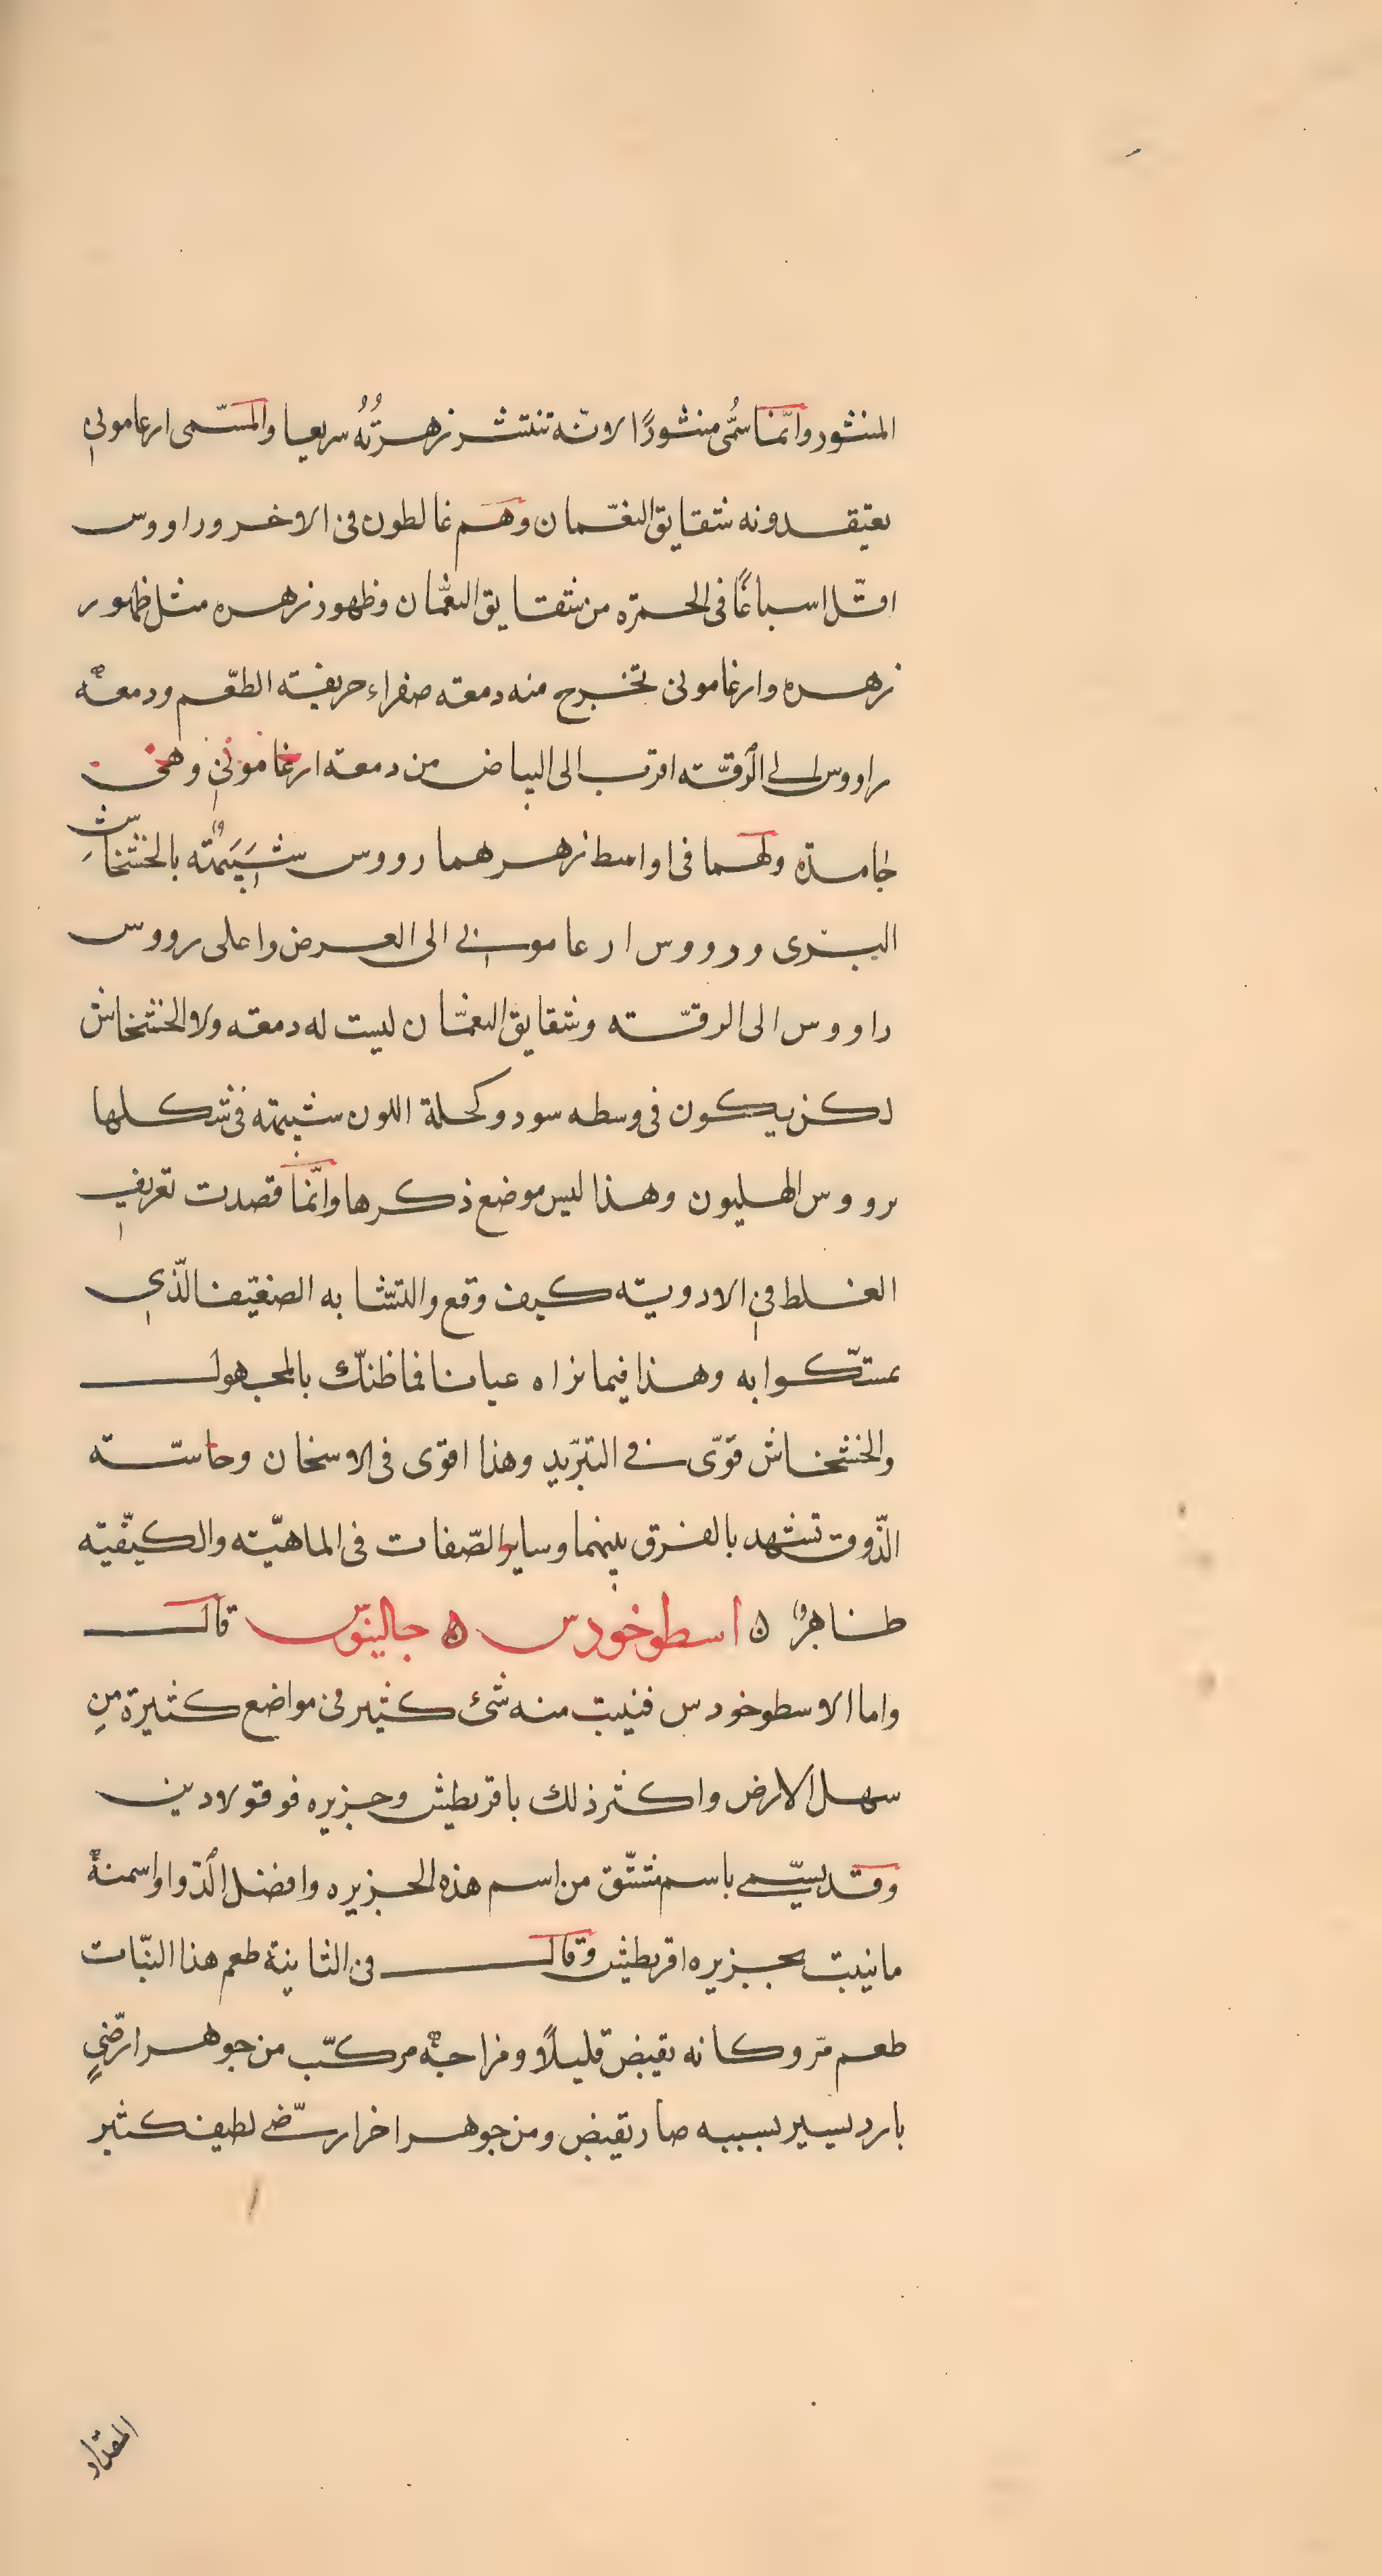 المنثور وانّما سُمّى منثورًا لانّه تنتثر زهرتُهُ سريعا والمسّمى ارغامونى
يعتقدونه شقايق النعّمان وهم غالطون فى الاخر وراووس
اقّل اسباغًا فى الحمرّه من شقايق النعّمان وظهور زهره مثل ظهور
زهره وارغامونى تخرج منه دمعته صفراء حريفيته الطعّم ودمعةٌ
راووس الى الرقّته اقرب الى البياض من دمعة ارغامونى وهى
جامدّه ولهما فى اواسط زهرهما رووس شبَيَهتٌه بالخشّخاشِ
البّرى ورووس ارغامونى الى العرض واعلى رووس
راووس الى الرقّته وشقايق النعّمان ليست له دمعته ولا الخشخاش
لكن يكون فى وسطه سود وكحلة اللون شبيهته فى شكلها
برووس الهليون وهذا ليس موضع ذكرها وانّما قصدت تعريف
الغلط فى الادويته كيف وقع والتشّابه الضعّيف الّذى
تمسّكوا به وهذا فيما نراه عيانا فما ظنّك بالمجهول
والخشخاش قوّى فى التبّريد وهذا اقوّى فى الاسخان وحاسّته
الذّوق تشهد بالفرق بينهما وساير الصّفات فى الماهيّته والكيفّيته
ظاهرٌ ه اسطوخودس ه جالينوّس قال
واما الاسطوخودس فنيبت منه شئ كثير فى مواضع كثيرة منِ
سهل الارض واكثر ذلك باقريطيش وجزيره فوقولادين
وقد يسّمى باسم مشتّق من اسم هذه الجزيره وافضل الدّوا واسمنهٌ
مانيبت بجزيره اقريطيش وقال فى الثانية طعم هذا النبّات
طعم مّر وكانه يقبض قليلاً ومزاجهٌ مركّب من جوهر ارّضىٍ
بارد يسير بسببه صار يقبض ومن جوهر اخر ارضّى لطيف كثير
المقدار